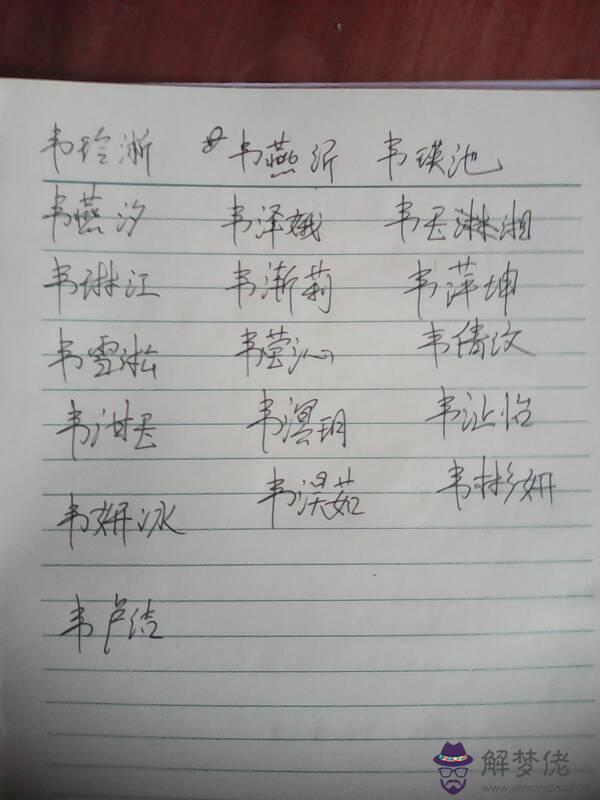 韦玲淅 韦燕沂 韦瑛池
韦燕汐 韦泽娥 韦昱淋湘
韦琳江 韦渐莉 韦萍坤
韦雪淞 韦莹沁 韦倩汶
韦泔昱 韦淏玥 韦沚怡
韦妍冰 韦淏茹 韦彬妍
韦卢洁
解梦佬
www.jiemenglao.com